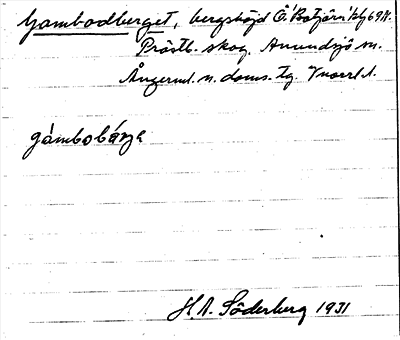 Gambodberget, bergshöjd Ö. Rotjärn blg 69 N.
Prästb. skog. Anundsjö sn.
Ångerml. n. doms. tg. Vnorrl. l.
gámbobárja
H.A. Söderberg 1931